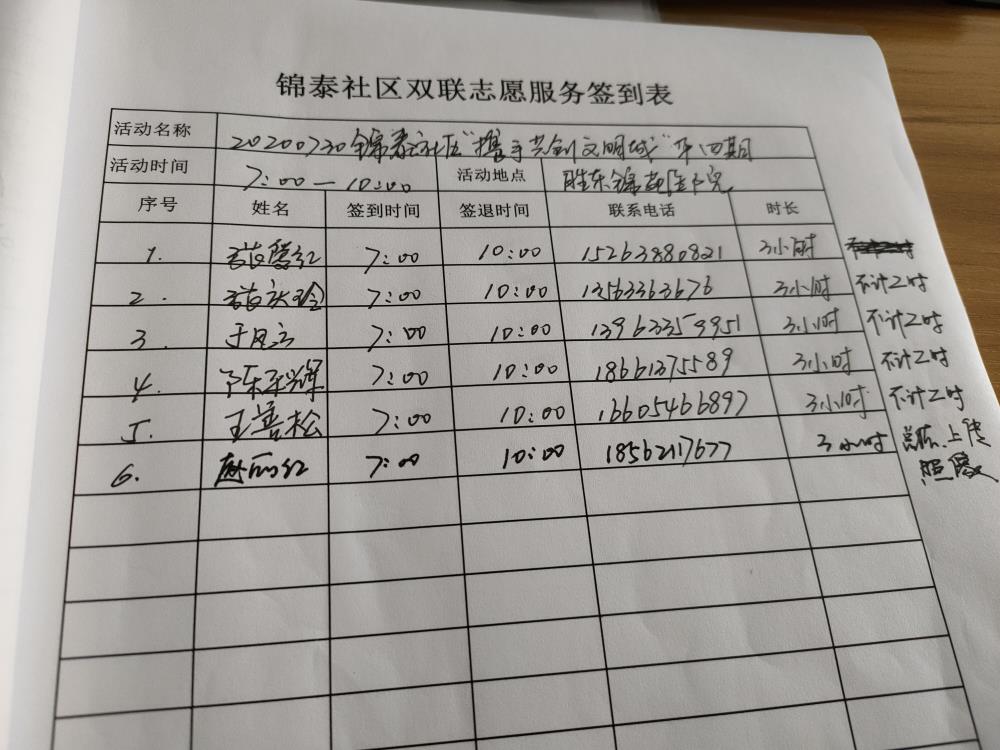 锦泰社区双联志愿服务签到表
活动名称 20200730锦泰社区"携手共创文明城"第四期
活动时间 7:00—10:00 活动地点 胜东锦苑
序号 姓名 签到时间 签退时间 联系电话 时长
1. 7:00 10:00 15263880821 3小时
2. 7:00 10:00 13563363676 3小时 不计工时
3. 7:00 10:00 13963359951 3小时 不计工时
4. 7:00 10:00 18661375589 3小时 不计工时
5. 王善松 7:00 10:00 16605466897 3小时 不计工时
6. 7:00 10:00 18562117677 3小时 上传
照片